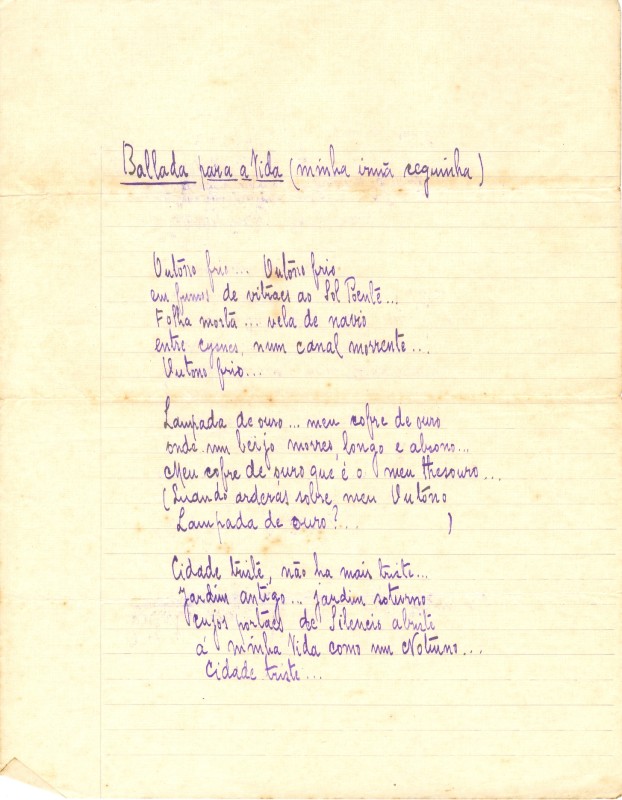 Ballada para a Vida (minha irmã ceguinha)
Outôno frio... Outôno frio
em fumos de vitraes ao Sol Poente...
Folha morta... vela de navio
entre cysnes, num canal morrente...
Outono frio...
Lampada de ouro... meu cofre de ouro
onde um beijo morres, longo e absono...
Meu cofre de ouro que é o meu thesouro...
(Quando arderás sobre meu Outôno
Lampada de ouro?... )
Cidade triste, não ha mais triste...
Jardim antigo... jardim soturno
cujos portões de Silencio abriste
á minha Vida como um Noturno...
Cidade triste...